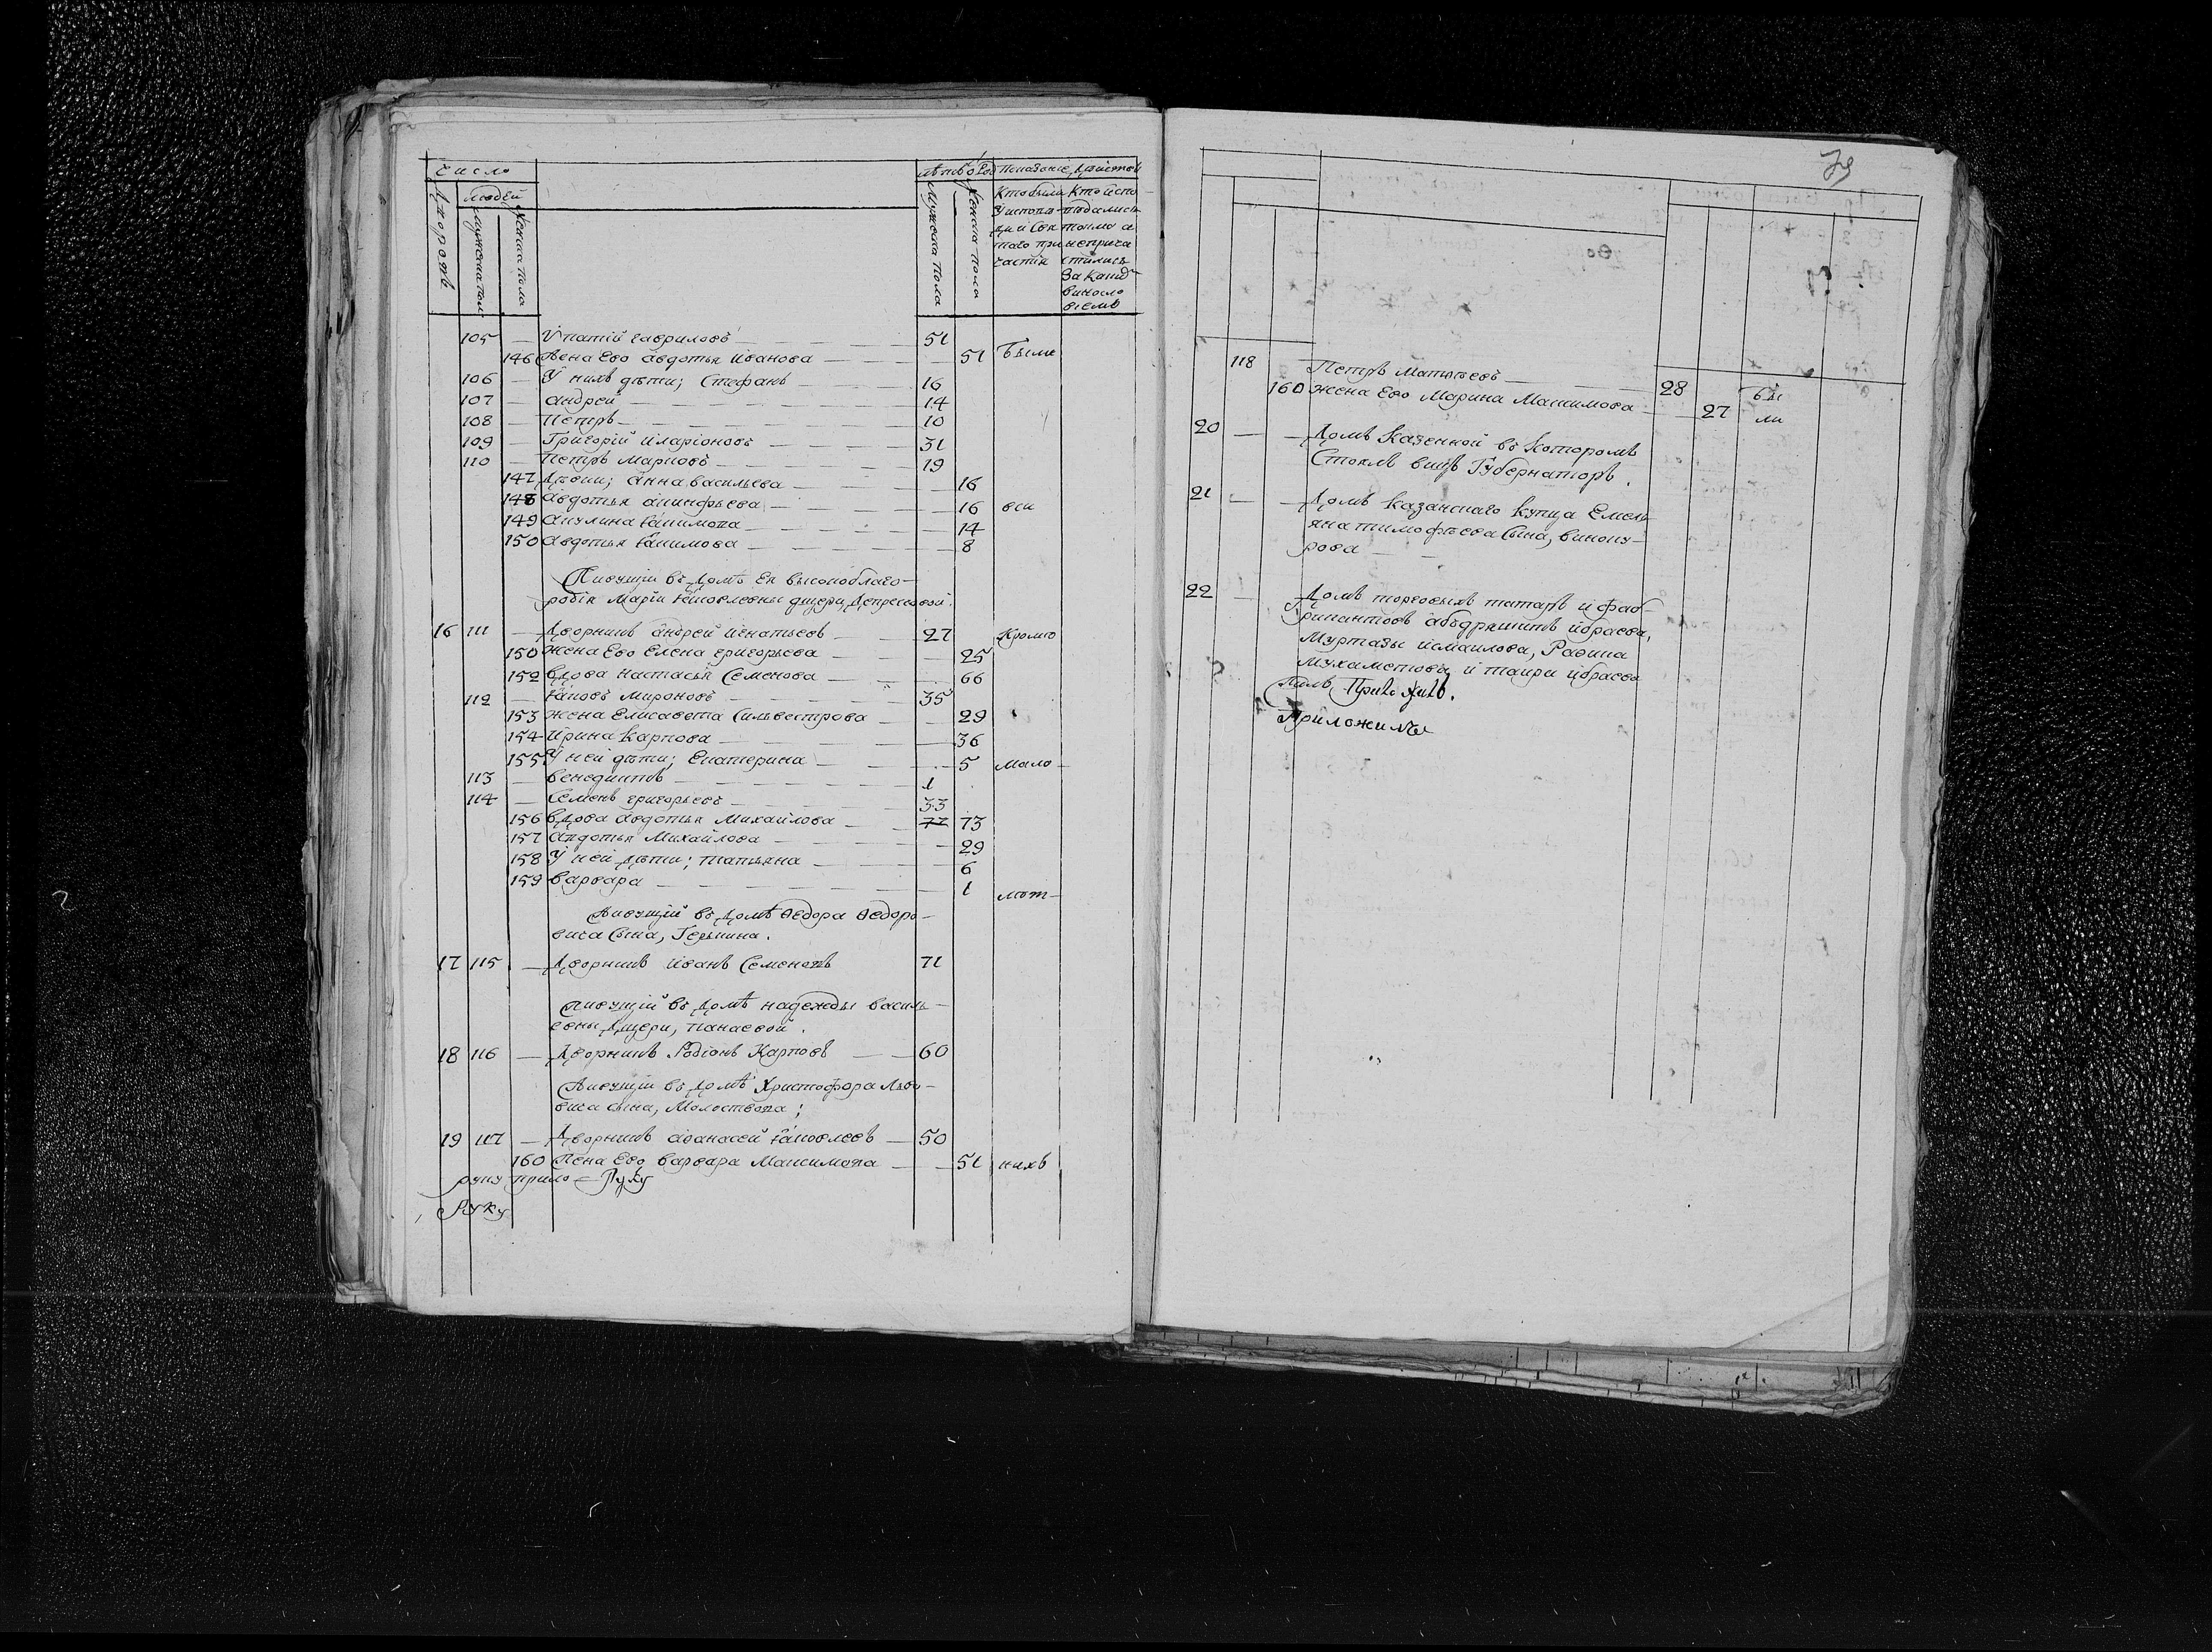 Число
Лѣтъ отъ Род Показаніе дѣйстви
людей
Дворовъ
Мужеска пола
Женска пола
Мужеска пола
Женска пола
Кто были
Уисповѣ
ди и Свя
таго при
частія
Кто испо
вѣдались
толко а
неприча
стились
За каким
виносло
віемъ
105 — Ипатій Гавриловъ — 51
146 Жена Ево Авдотья Иванова — 51 Были
106 — У нихъ дѣти; Стефанъ — 16
107 — Андрей — 14
108 — Петръ — 10
109 — Григорій Иларіоновъ — 31
110 — Петръ Марковъ — 19
147 Дѣвки; Анна Васильева — 16
148 Авдотья Акинфьева — 16 вси
149 Акулина Іакимова — 14
150 Авдотья Іакимова — 8
Живущіи въ Домѣ Ея высокоблаго-
родія Маріи Іаковлевны дщери,
16 111 — Дворникъ Андрей Игнатьевъ — 27 Кромѣ
150 Жена Ево Елена Григорьева — 25
152 Вдова Настасья Семенова — 66
112 — Іаковъ Мироновъ — 35
153 Жена Елисавета Сильвестрова — 29
154 Ирина Карпова — 36
155 У ней дѣти; Екатерина — 5 мало-
113 — Венедиктъ — 1
114 — Семенъ Григорьевъ — 33
156 Вдова Авдотья Михайлова — 77 73
157 Авдотья Михайлова — 29
158 У ней дѣти; Татьяна — 6
159 Варвара — 1 лѣт-
Живущій въ Домѣ Ѳедора Ѳедоро-
вича Сына, Геркина.
17 115 — Дворникъ Иванъ Семеновъ 71
Живущій въ Домѣ Надежды Василь-
евны Дщери, Панаевой.
18 116 — Дворникъ Родіонъ Карповъ — 60
Живущіи въ Домѣ Христофора Льво-
вича сына, Молоствова;
19 117 — Дворникъ Аѳанасей Іаковлевъ — 50
160 Жена Ево Варвара Максимова — 51 нихъ
руку прило — Руку
Руку
79
118 Петръ Матвѣевъ — 28 бы
160 Жена Ево Марина Максимова — 27 ли
20 — Домъ Казенной въ Которомъ
Стоялъ вицъ Губернаторъ.
21 — Домъ Казанскаго Купца Емель
яна Тимофѣева Сына, Виноку-
рова
22 — Домъ торговыхъ татаръ и фаб-
рикантовъ Абдряшитъ Ибраева,
Муртазы Исмаилова,
Мухаметова, и Таири Ибраева
Приложилъ